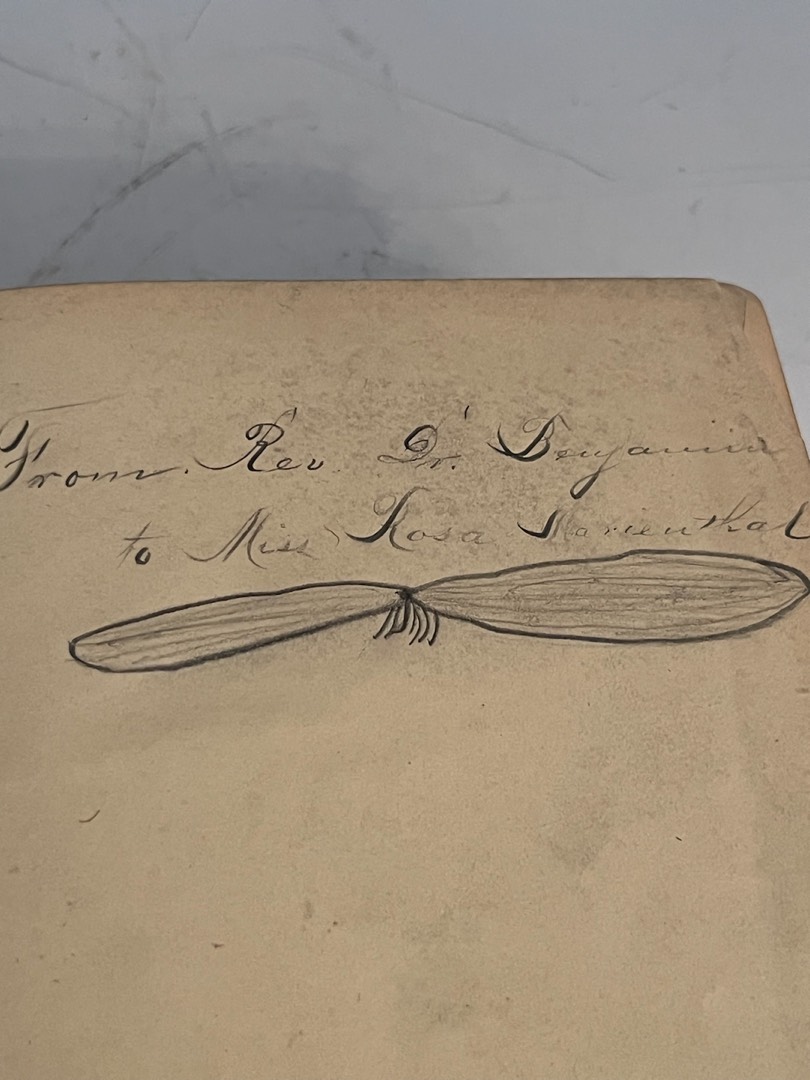 From Rev. Dr. Benjamin
to Miss Rosa Marienthal